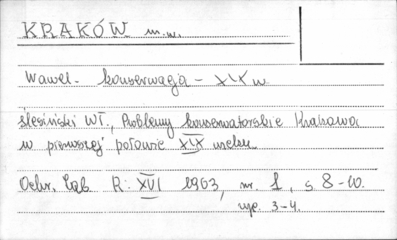 KRAKÓW m.m.
Wawel - konserwacja - XIX w.
Ślesiński Wł., Problemy konserwatorskie Krakowa
w pierwszej połowie XIX wieku.
Ochr. Zab. R: XVI 1963, nr. 1, s 8-10.
ryc. 3-4.